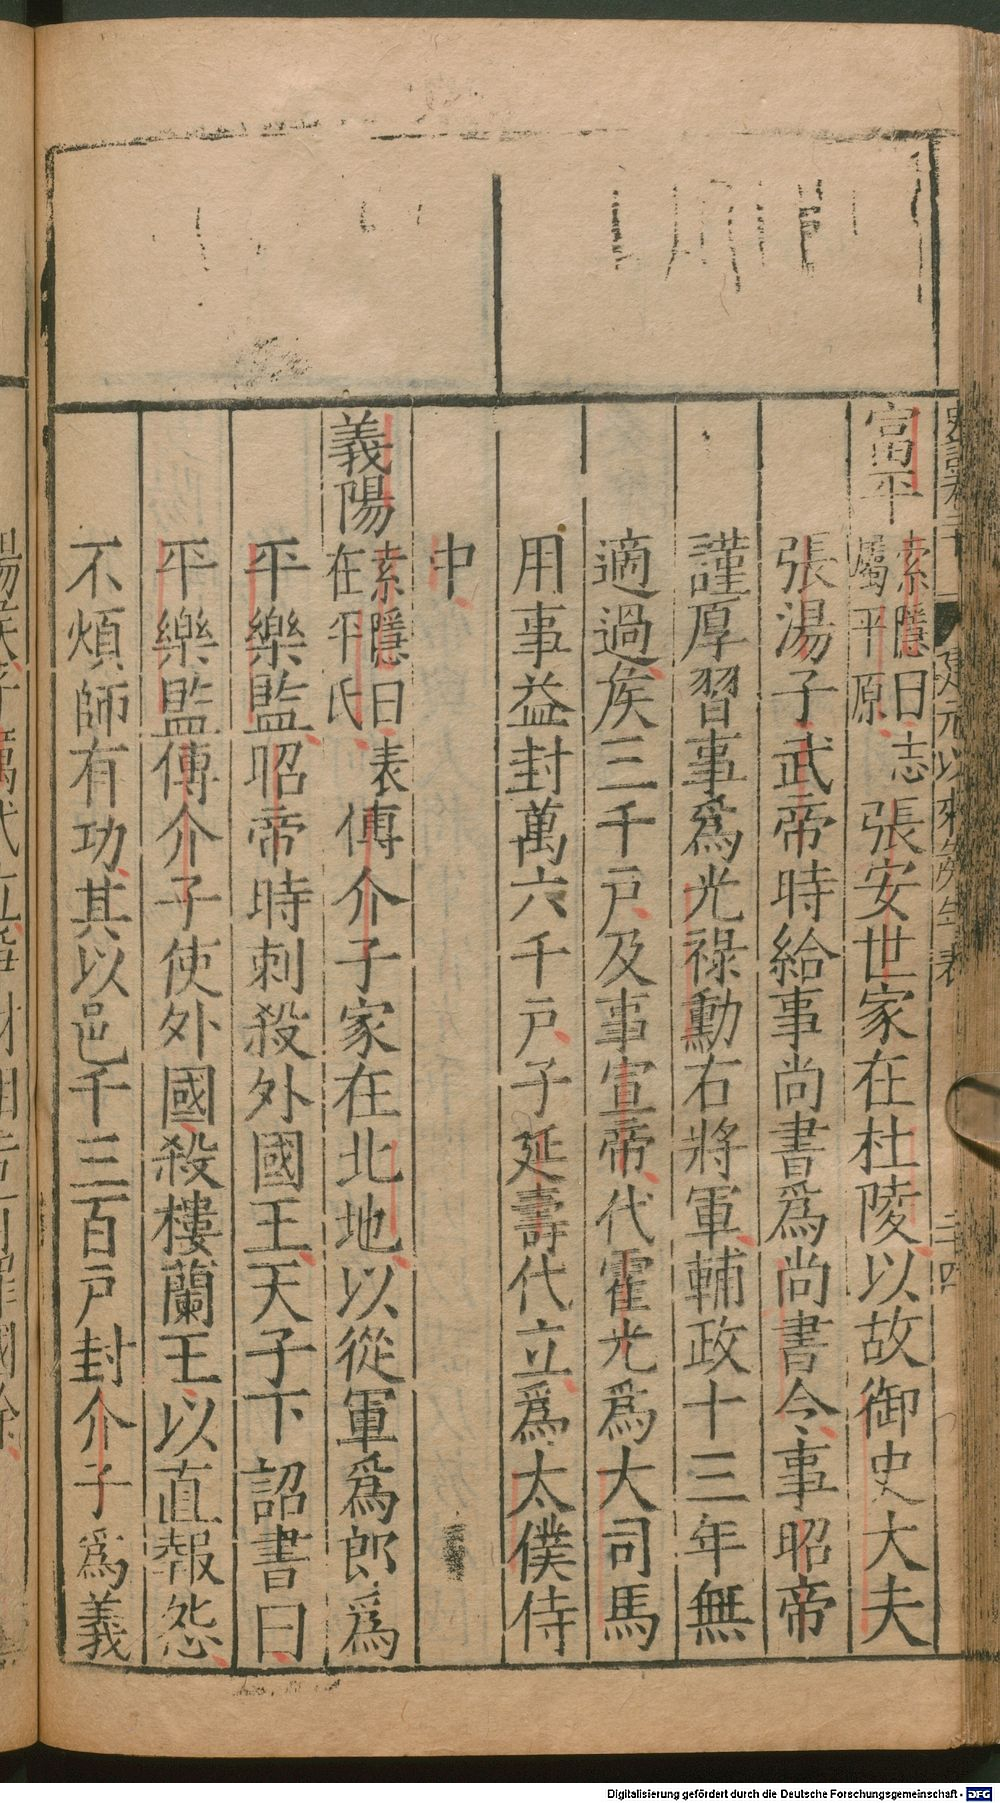 富平 索隱曰志屬平原 張安世家在杜陵以故御史大夫
張湯子武帝時給事尚書爲尚書令事昭帝
謹厚習事爲光祿勳右將軍輔政十三年無
適過矦三千戸及事宣帝代霍光爲大司馬
用事益封萬六千戸子延壽代立爲太僕侍
中
義陽 索隱曰表在平氏 傅介子家在北地以從軍爲郎爲
平樂監昭帝時刺殺外國王天子下詔書曰
平樂監傅介子使外國殺樓蘭王以直報怨
不煩師有功其以邑千三百戸封介子爲義
建元以來矦年表
二十四
Digitalisierung gefördert durch die Deutsche Forschungsgemeinschaft - DFG